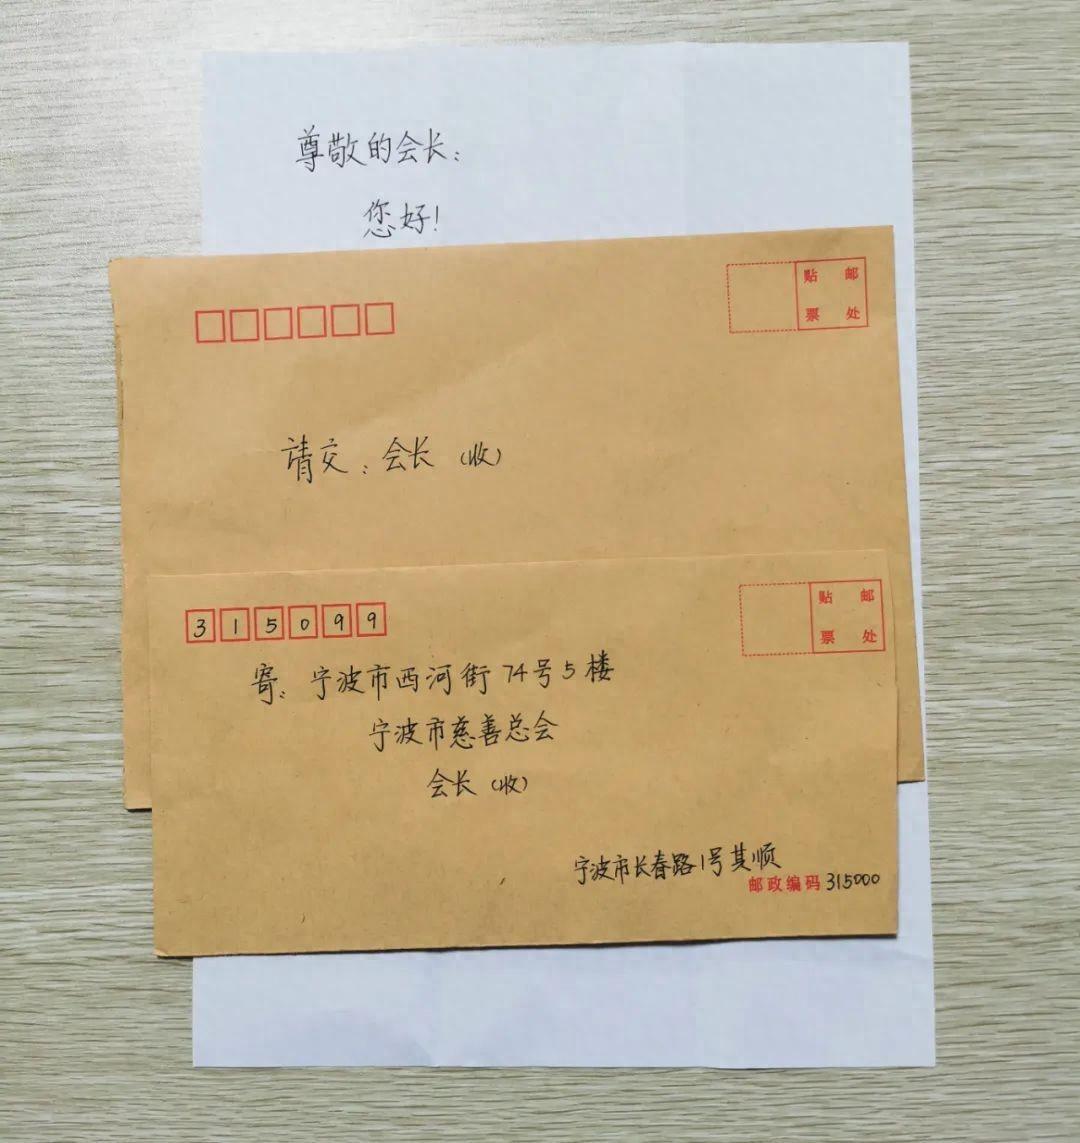 尊敬的会长:
您好!
贴 邮
票 处
请交:会长(收)
315099
贴 邮
票 处
寄:宁波市西河街74号5楼
宁波市慈善总会
会长(收)
宁波市长春路1号其顺
邮政编码 315000